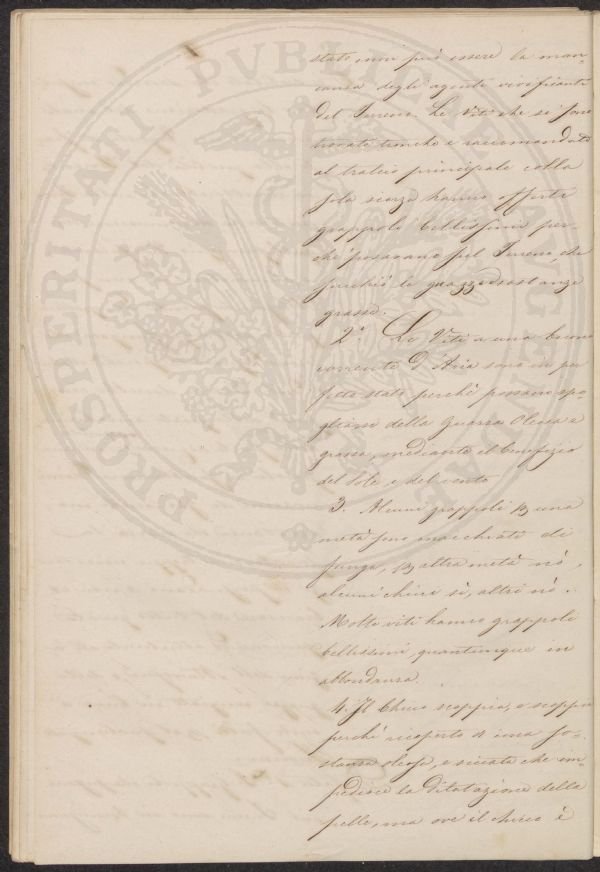 stato, non può essere la man-
canza degli agenti vivificanti
del Terreno. Le Viti che si sono
trovate tronche e raccomandate
al tralcio principale colla
sola scorza hanno offerti
grappoli bellissimi per-
chè posavano sul Terreno, che
succhiò le sostanze
grasse.
2.° Le Viti a una buona
corrente d'Aria sono in per-
fetto stato perchè possono spo-
gliarsi della Oleosa e
grassa, mediante il benefizio
del Sole e del vento
3. Alcuni grappoli p una
metà sono macchiati di
fungo, p altra metà nò,
alcuni chicci sì, altri nò.
Molte viti hanno grappoli
bellissimi, quantunque in
abbondanza.
4. Il Chicco scoppia, e scoppia
perchè ricoperto di una so-
stanza oleosa, e siccata che im-
pedisce la dilatazione della
pelle, ma ove il chicco è
PROSPERITATI PVBLICAE AVGENDAE